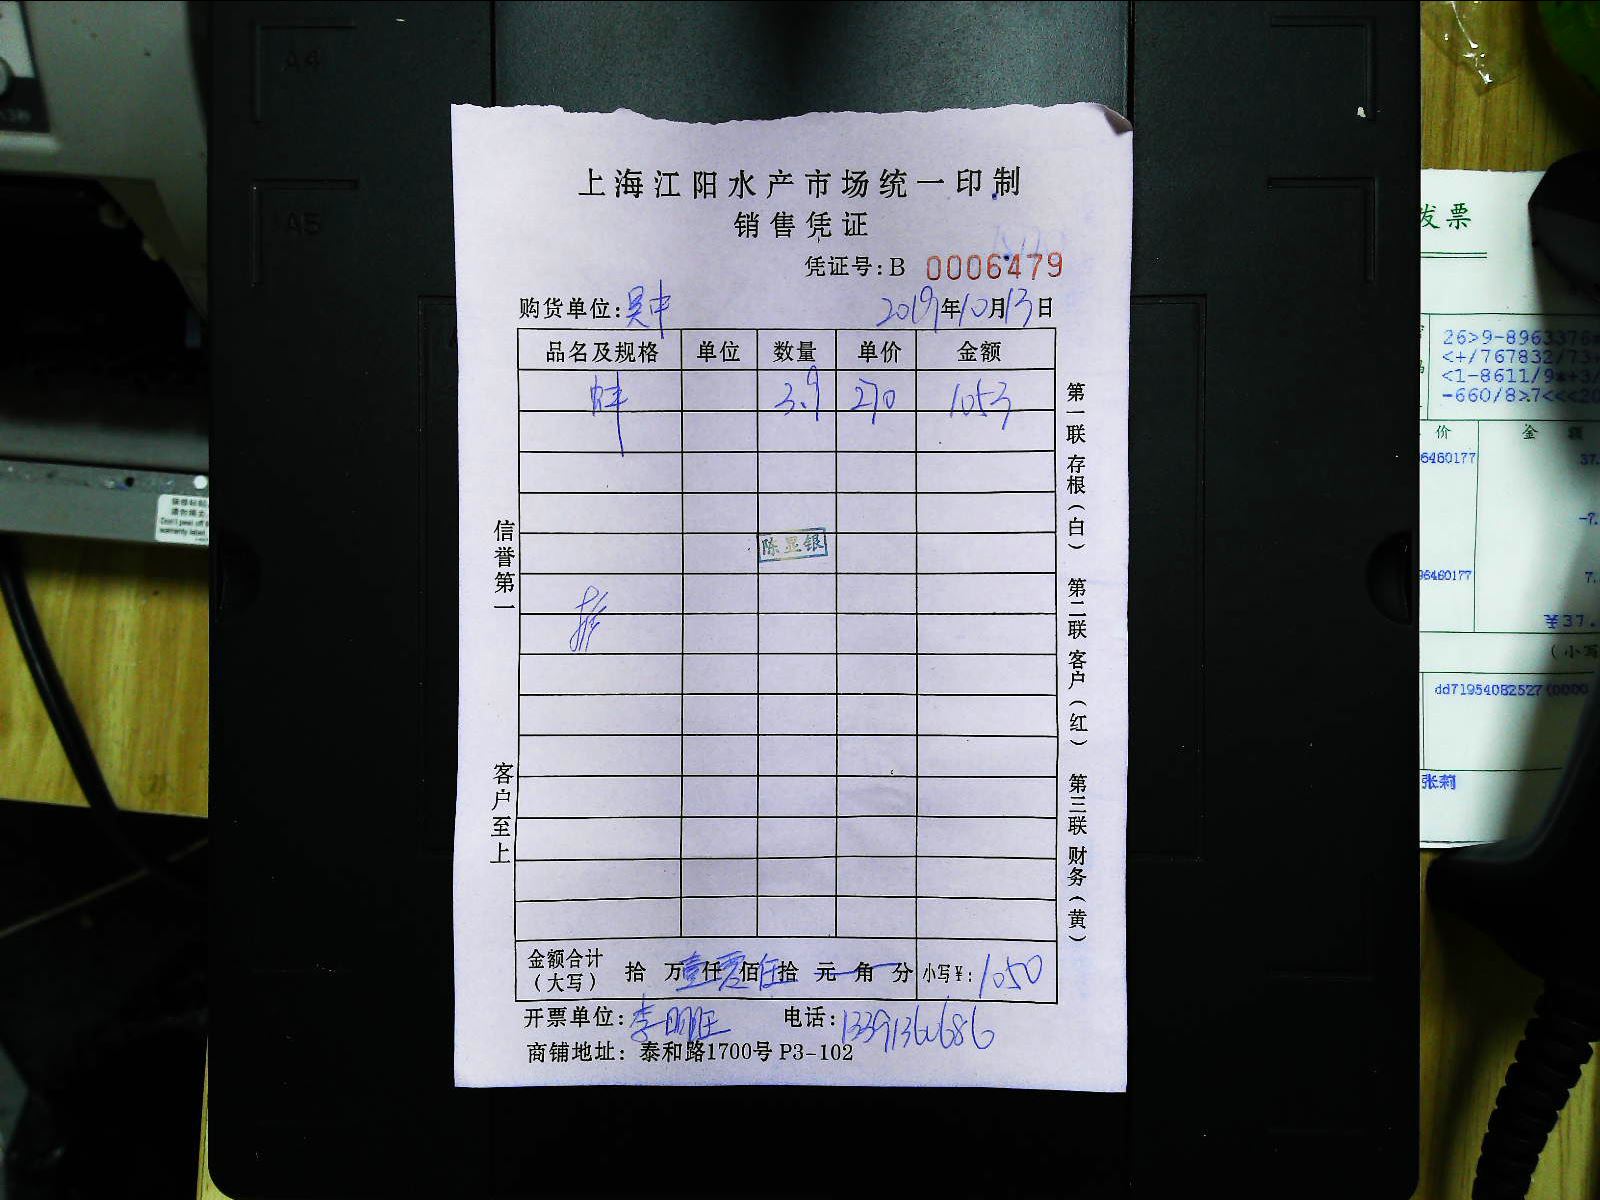 A4
A5
上海江阳水产市场统一印制
销售凭证
凭证号:B 0006479
购货单位:吴中 2019年10月13日
品名及规格 单位 数量 单价 金额
蚌 3.9 270 1053
陈显银
信誉第一
客户至上
第一联 存根(白) 第二联 客户(红) 第三联 财务(黄)
金额合计(大写) 拾 万壹仟零佰伍拾 元 角 分 小写¥:1050
开票单位:李明旺 电话:
商铺地址: 泰和路1700号 P3-102
发票
26>9-8963376
<+/767832/73
<1-8611/9*+3/
-660/8>7<<<20
价 金 额
6460177 37.
-7.
96460177 7.
¥37.
(小写
dd71954082527(0000
张莉